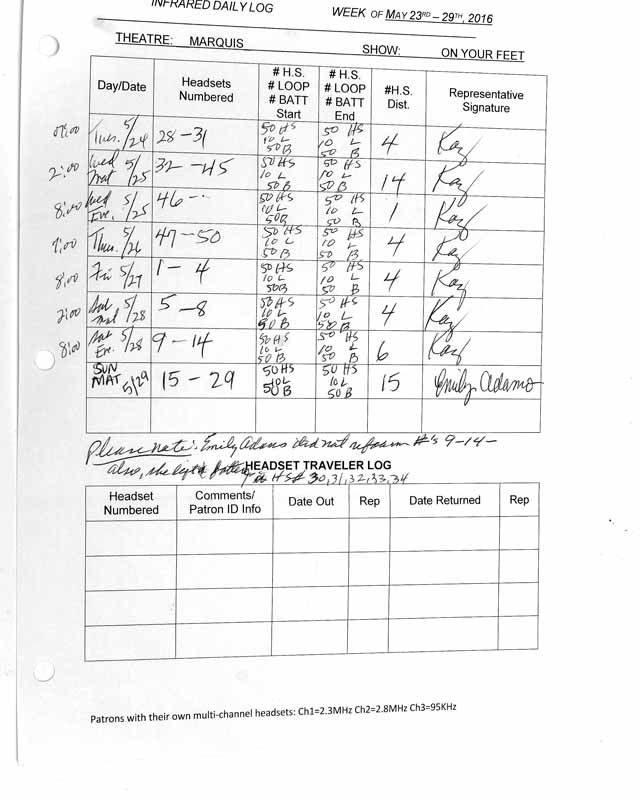 INFRARED DAILY LOG WEEK OF MAY 23RD – 29TH, 2016
THEATRE: MARQUIS SHOW: ON YOUR FEET
Day/Date Headsets Numbered # H.S. # LOOP # BATT Start # H.S. # LOOP # BATT End #H.S. Dist. Representative Signature
Tues. 5/24 28-31 50 HS 10 L 50 B 50 HS 10 L 50 B 4 Kay
2:00 Wed Mat 5/25 32-45 50 HS 10 L 50 B 50 HS 10 L 50 B 14 Kay
8:00 Wed Eve. 5/25 46-- 50 HS 10 L 50 B 50 HS 10 L 50 B 1 Kay
7:00 Thus. 5/26 47-50 50 HS 10 L 50 B 50 HS 10 L 50 B 4 Kay
8:00 Fri 5/27 1-4 50 HS 10 L 50 B 50 HS 10 L 50 B 4 Kay
2:00 Sat Mat 5/28 5-8 50 HS 10 L 50 B 50 HS 10 L 50 B 4 Kay
8:00 Sat Eve. 5/28 9-14 50 HS 10 L 50 B 50 HS 10 L 50 B 6 Kay
SUN MAT 5/29 15-29 50 HS 10 L 50 B 50 HS 10 L 50 B 15 Emily Adams
Please note: Emily Adams did not #'s 9-14-
also, she HS# 30,31,32,33,34
HEADSET TRAVELER LOG
Headset Numbered Comments/ Patron ID Info Date Out Rep Date Returned Rep
Patrons with their own multi-channel headsets: Ch1=2.3MHz Ch2=2.8MHz Ch3=95KHz